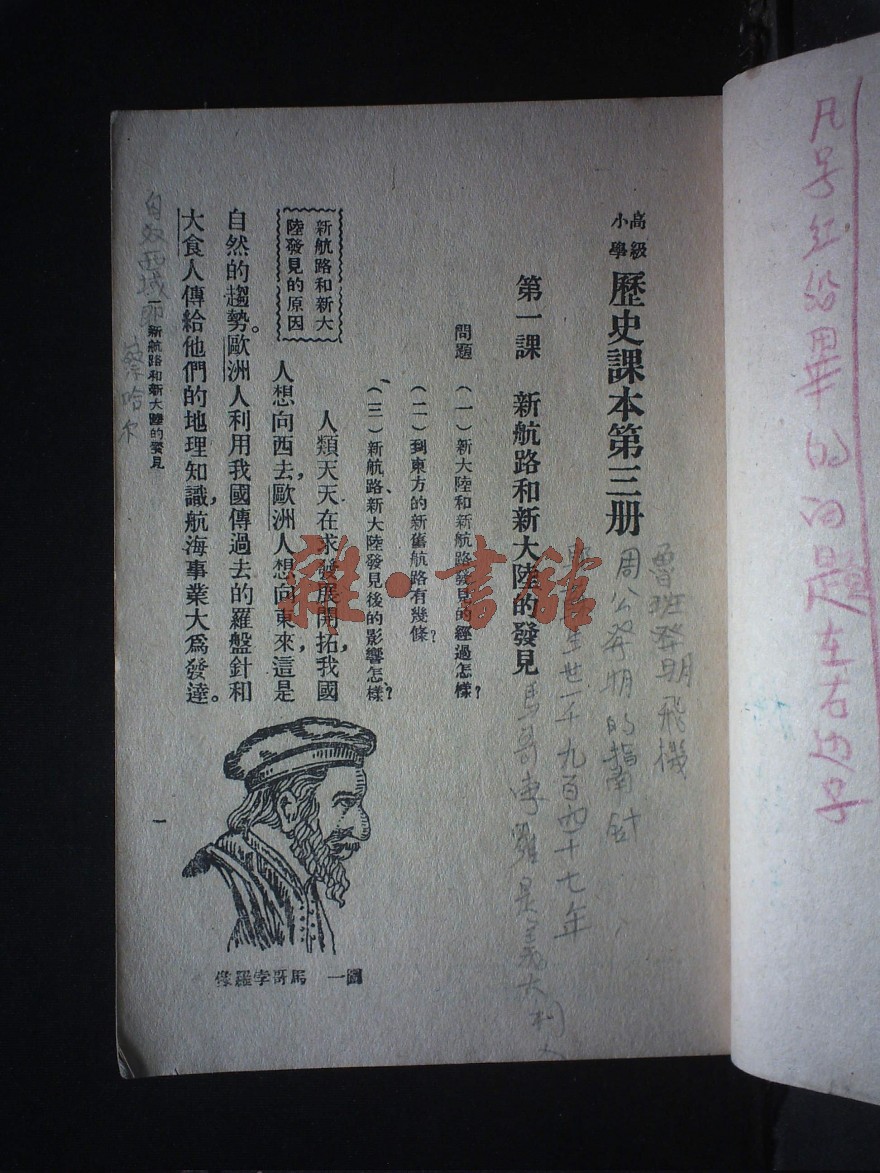 高級小學 歷史課本第三册
第一課 新航路和新大陸的發見
問題 (一)新大陸和新航路發見的經過怎樣?
(二)到東方的新舊航路有幾條?
(三)新航路、新大陸發見後的影響怎樣?
新航路和新大
陸發見的原因
人類天天在求發展開拓,我國
人想向西去,歐洲人想向東來,這是
自然的趨勢。歐洲人利用我國傳過去的羅盤針和
大食人傳給他們的地理知識,航海事業大爲發達。
圖一 馬哥孛羅像
一 新航路和新大陸的發見
一
魯班發明飛機
周公發明的指南針
生世一千九百四十七年
馬哥孛羅是義大利人
凡号红铅畢的问題左右边号
雜·書館